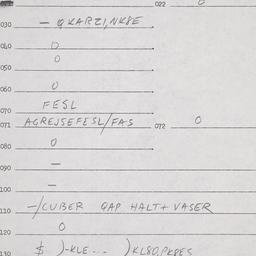 022 0
030 - QKARZI,NK8E
040 0
050 0
060 0
070 FESL
071 AGREJSEFESL/FAS 072 0
080 0
090 -
100 -
110 -/CUBER GAP HALT+ VASER
120 0
130 $ )-KLE... )KL80,PK8ES